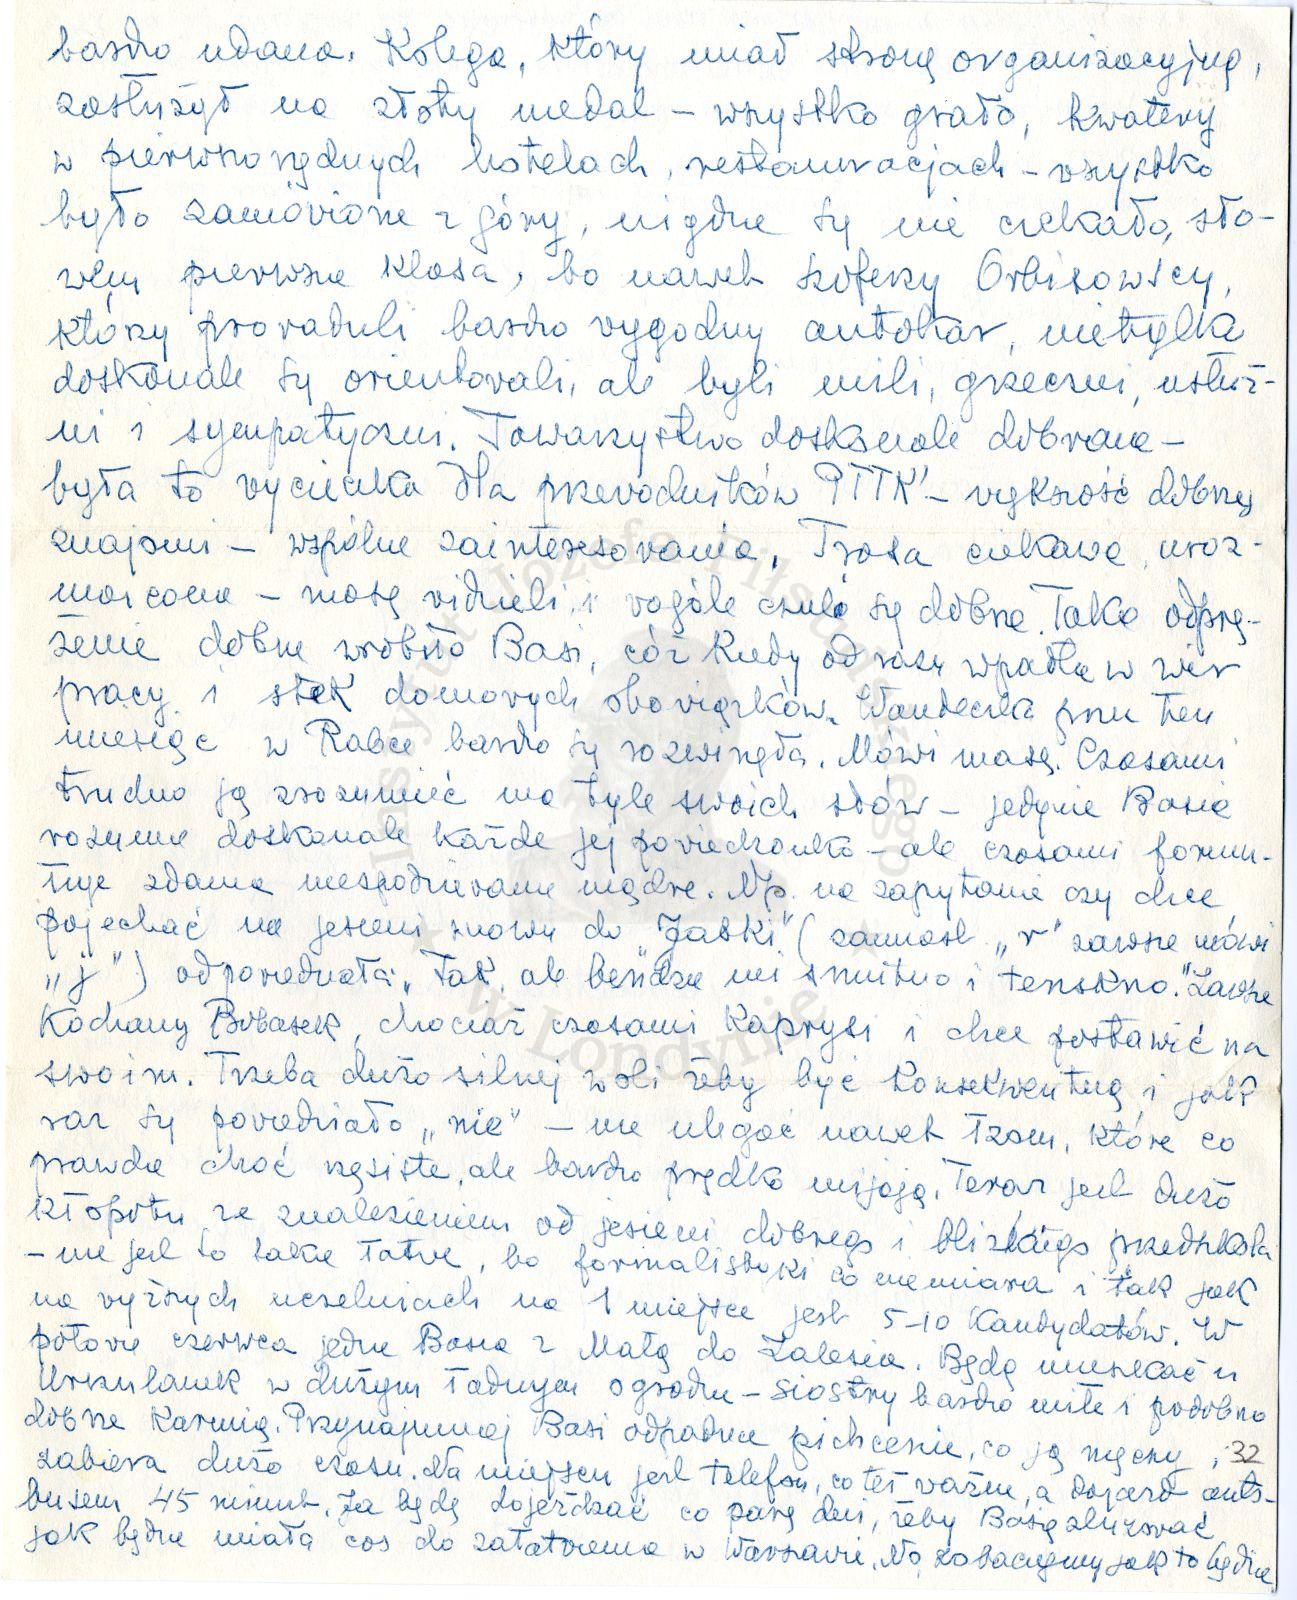 bardzo udana. Kolega, który miał stronę organizacyjną,
zasłużył na złoty medal – wszystko grało, kwatery
w pierwszorzędnych hotelach, restauracjach – wszystko
było zamówione z góry, nigdzie się nie czekało, sło-
wem pierwsza klasa, bo nawet szoferzy Orbisowscy,
którzy prowadzili bardzo wygodny autokar, nietylko
doskonale się orientowali, ale byli mili, grzeczni, usłuż-
ni i sympatyczni. Towarzystwo doskonale dobrane –
była to wycieczka dla przewodników PTTK' – większość dobrzy
znajomi – wspólne zainteresowania. Trasa ciekawa, uroz-
maicona – masę widzieli i wogóle czuło się dobrze. Takie odprę-
żenie dobrze zrobiło Basi, cóż kiedy od razu wpadła w wir
pracy i stek domowych obowiązków. Wandeczka przez ten
miesiąc w Rabce bardzo się rozwinęła. Mówi masę. Czasami
trudno ją zrozumieć ma tyle swoich słów – jedynie Basia
rozumie doskonale każde jej powiedzonko – ale czasami formu-
łuje zdania niespodziewanie mądre. Np. na zapytanie czy chce
pojechać na jesieni znowu do „Jabki” (zamiast „r” zawsze mówi
„j”) odpowiedziała: „Tak, ale bendzie mi smutno i tenskno.” Zawsze
kochany Bobasek, chociaż czasami kaprysi i chce postawić na
swoim. Trzeba dużo silnej woli żeby być konsekwentną i jak
raz się powiedziało „nie” – nie ulegać nawet łzom, które co
prawda choć rzęsiste, ale bardzo prędko mijają. Teraz jest dużo
kłopotu ze znalezieniem od jesieni dobrego i bliskiego przedszkola
– nie jest to takie łatwe, bo formalistyki co niemiara i tak jak
na wyższych uczelniach na 1 miejsce jest 5–10 kandydatów. W
połowie czerwca jedzie Basia z Małą do Zalesia. Będą mieszkać u
Urszulanek w dużym ładnym ogrodzie – siostry bardzo miłe i podobno
dobrze karmią. Przynajmniej Basi odpadnie pichcenie, co ją męczy i
32
zabiera dużo czasu. Na miejscu jest telefon, co też ważne, a dojazd auto-
busem 45 minut. Ja będę dojeżdżać co parę dni, żeby Basię zluzować
jak będzie miała coś do załatwienia w Warszawie. No, zobaczymy jak to będzie
Instytut Józefa Piłsudskiego
★ w Londynie ★